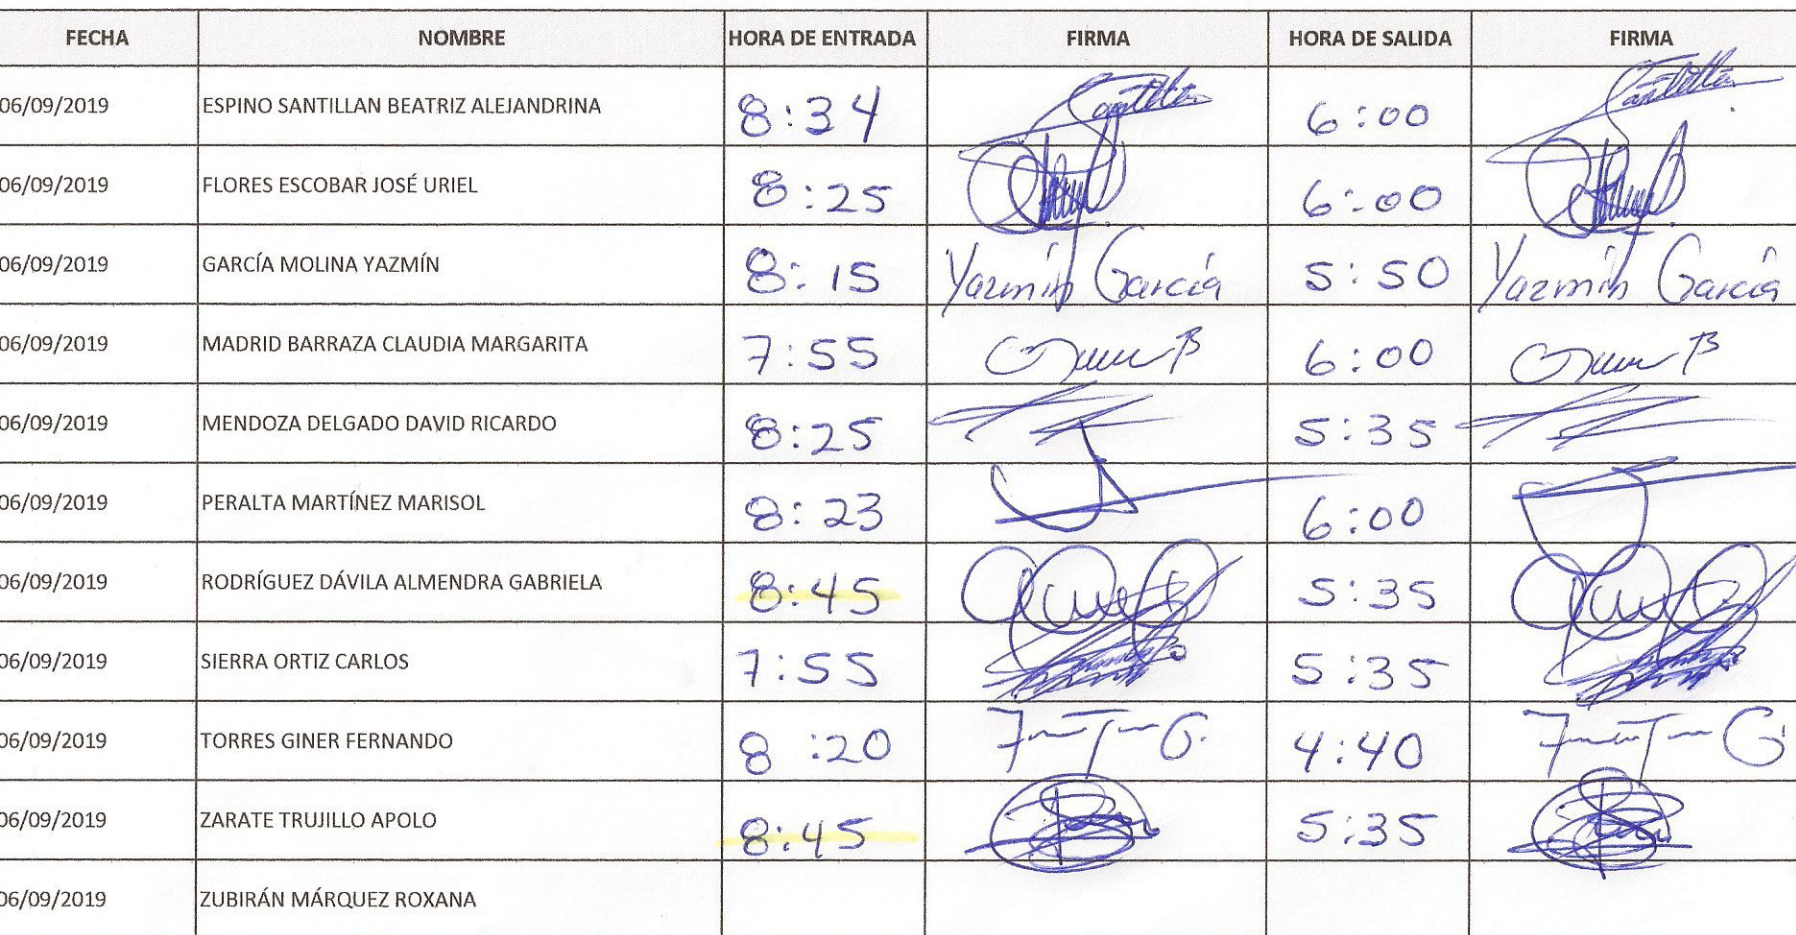 FECHA NOMBRE HORA DE ENTRADA FIRMA HORA DE SALIDA FIRMA
06/09/2019 ESPINO SANTILLAN BEATRIZ ALEJANDRINA 8:34 6:00
06/09/2019 FLORES ESCOBAR JOSÉ URIEL 8:25 6:00
06/09/2019 GARCÍA MOLINA YAZMÍN 8:15 Yazmín García 5:50 Yazmín García
06/09/2019 MADRID BARRAZA CLAUDIA MARGARITA 7:55 6:00
06/09/2019 MENDOZA DELGADO DAVID RICARDO 8:25 5:35
06/09/2019 PERALTA MARTÍNEZ MARISOL 8:23 6:00
06/09/2019 RODRÍGUEZ DÁVILA ALMENDRA GABRIELA 8:45 5:35
06/09/2019 SIERRA ORTIZ CARLOS 7:55 5:35
06/09/2019 TORRES GINER FERNANDO 8:20 4:40
06/09/2019 ZARATE TRUJILLO APOLO 8:45 5:35
06/09/2019 ZUBIRÁN MÁRQUEZ ROXANA